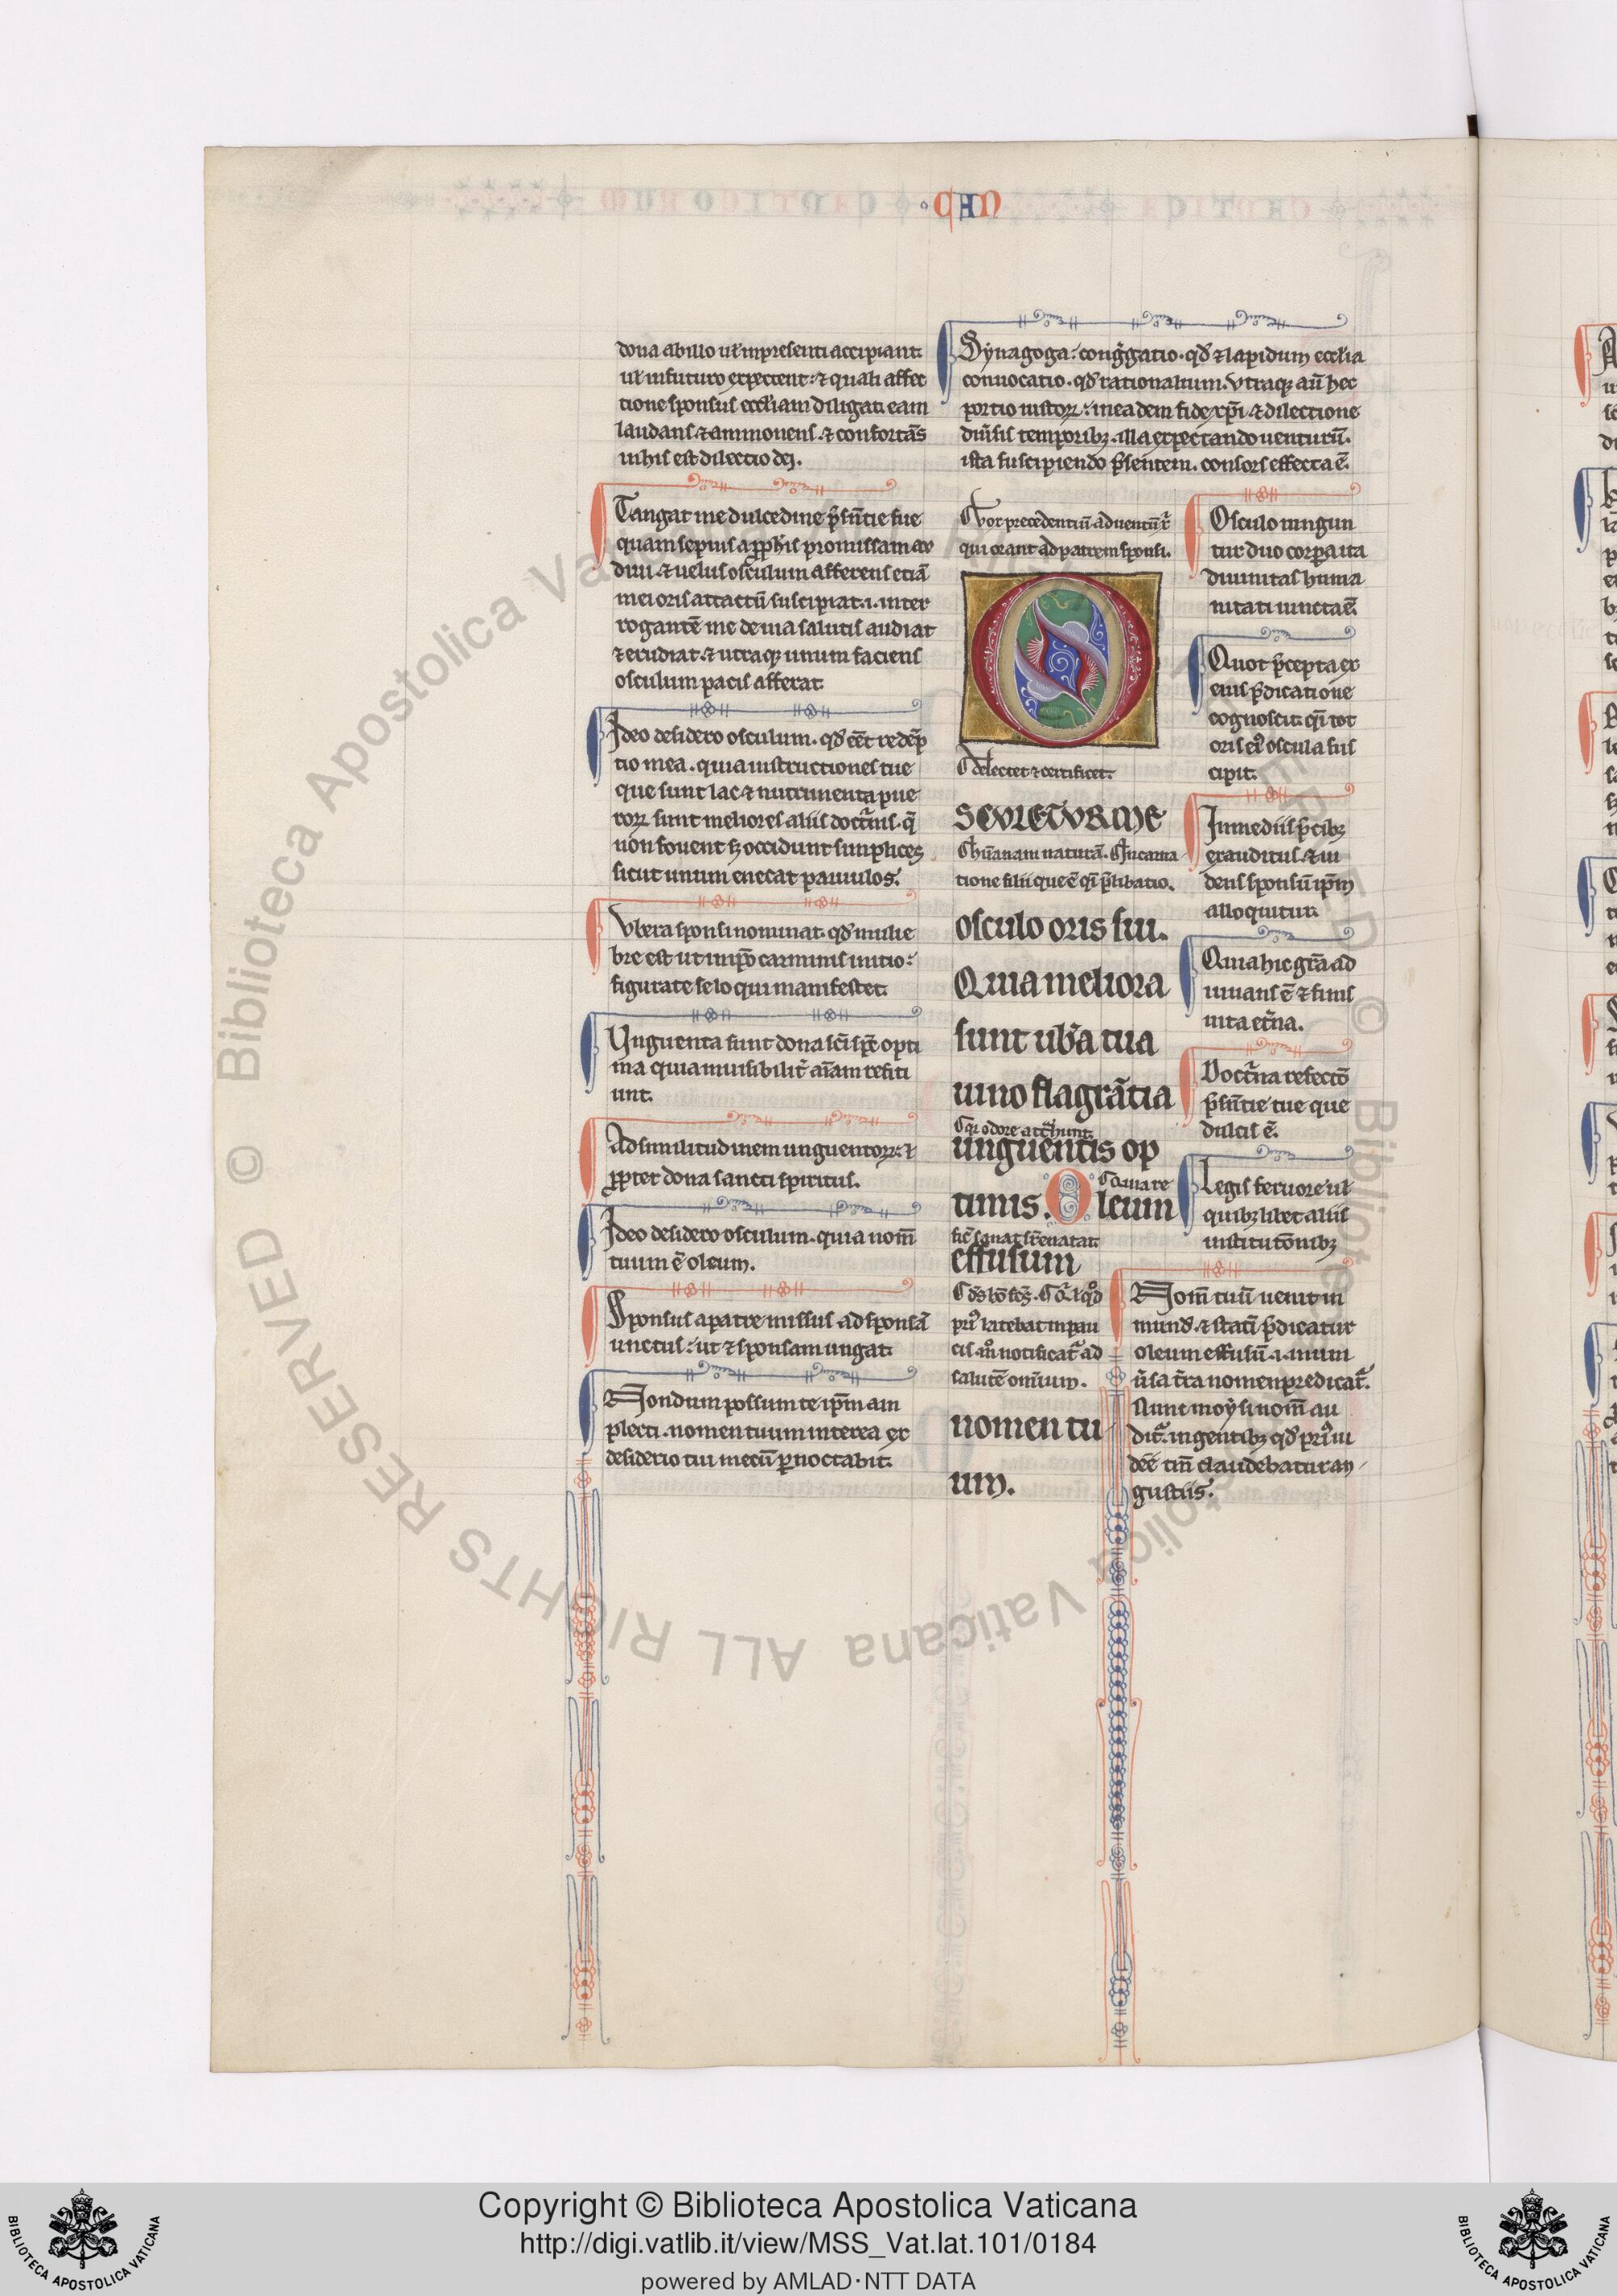 CAN
dona ab illo ut̃ in presenti accipiant.
ut̃ in futuro expectent: ⁊ quali affec
tione sponsus eccl̃iam diligat: eam
laudans ⁊ ammonens ⁊ confortãs
nichil est dilectio dei.
Tangat me dulcedine p̃sentie sue
quam sepius a p̱phis promissam au
diui. ⁊ uelut osculum afferens etiã
mei oris attactũ suscipiat .i. inter
rogantẽ me de uia salutis audiat
⁊ erudiat. ⁊ utraq; unum faciens
osculum pacis afferat.
Ideo desidero osculum. qd̃ eẽt redẽp
tio mea. quia instructiones tue
que sunt lac ⁊ nutrimenta pue
rorꝝ sunt meliores aliis doctrinis. q̃
non fouent s; occidunt simplices
sicut uinum enecat paruulos.
Vbera sponsi nominat. qd̃ mulie
bre est ut in ip̃o carminis initio:
figurate se loqui manifestet.
Vnguenta sunt dona sc̃i sp̃c opti
ma quia inuisibilit̃ aĩam refici
unt.
Ad similitudinem unguentorꝝ. ⁊
p̱pter dona sancti spiritus.
Ideo desidero osculum. quia nom̃
tuum ẽ oleum.
Sponsus a patre missus ad sponsã
unctus: ut ⁊ sponsam ungat.
Nondum possum te ip̃m am
plecti. nomen tuum interea ex
desiderio tui mecũ pernoctabit.
Synagoga: cong̃gatio. qd̃ ⁊ lapidum eccl̃ia
conuocatio. qd̃ rationalium. Vtraq; aũ hec
portio iustorꝝ: in eadem fide xp̃i ⁊ dilectione
diu̾sis temporib; illa expectando uenturũ.
ista suscipiendo p̃sentem. consors effecta ẽ.
Vox precedentiũ aduentũ xr̃
qui orant ad patrem sponsi.
O
Delectet ⁊ certificet.
SCVLETVR ME
hũanam naturã. Incarna
tione filii que ẽ q̃i p̃libatio.
osculo oris sui.
Quia meliora
sunt ub̾a tua
uino flagrãtia
Qr̃ odore att̃hunt.
unguentis op
timis. Oleum
effusum
salutẽ omĩum.
nomen tu
um.
Osculo iungun
tur duo corpora ita
diuinitas huma
nitati iuncta ẽ
Quot p̃cepta ex
eius p̃dicatione
cognoscit. q̃i tot
oris ei̾ oscula sus
cipit.
In mediis p̃cib;
exauditus. ⁊ ui
dens sponsũ ip̃m
alloquitur.
Quia hic gr̃a ad
iuuans ẽ ⁊ finis
uita et̾na.
Doctr̃na refectõ
p̃sentie tue que
dulcis ẽ.
Legis feruore ut̃
quib;libet aliis
institutõnib;
Nom̃ tuũ uenit in
mund̃. ⁊ statĩ p̃dicatur
oleum effusũ .i. in uni
ũsa t̾ra nomen predicat̃.
Nunc moysi nom̃ au
dit̃ in gentib; qd̃ p̃us iu
dee tm̃ claudebatur an
gustiis.
Copyright © Biblioteca Apostolica Vaticana
http://digi.vatlib.it/view/MSS_Vat.lat.101/0184
powered by AMLAD·NTT DATA
BIBLIOTECA APOSTOLICA VATICANA
BIBLIOTECA APOSTOLICA VATICANA
© Biblioteca Apostolica Vaticana ALL RIGHTS RESERVED